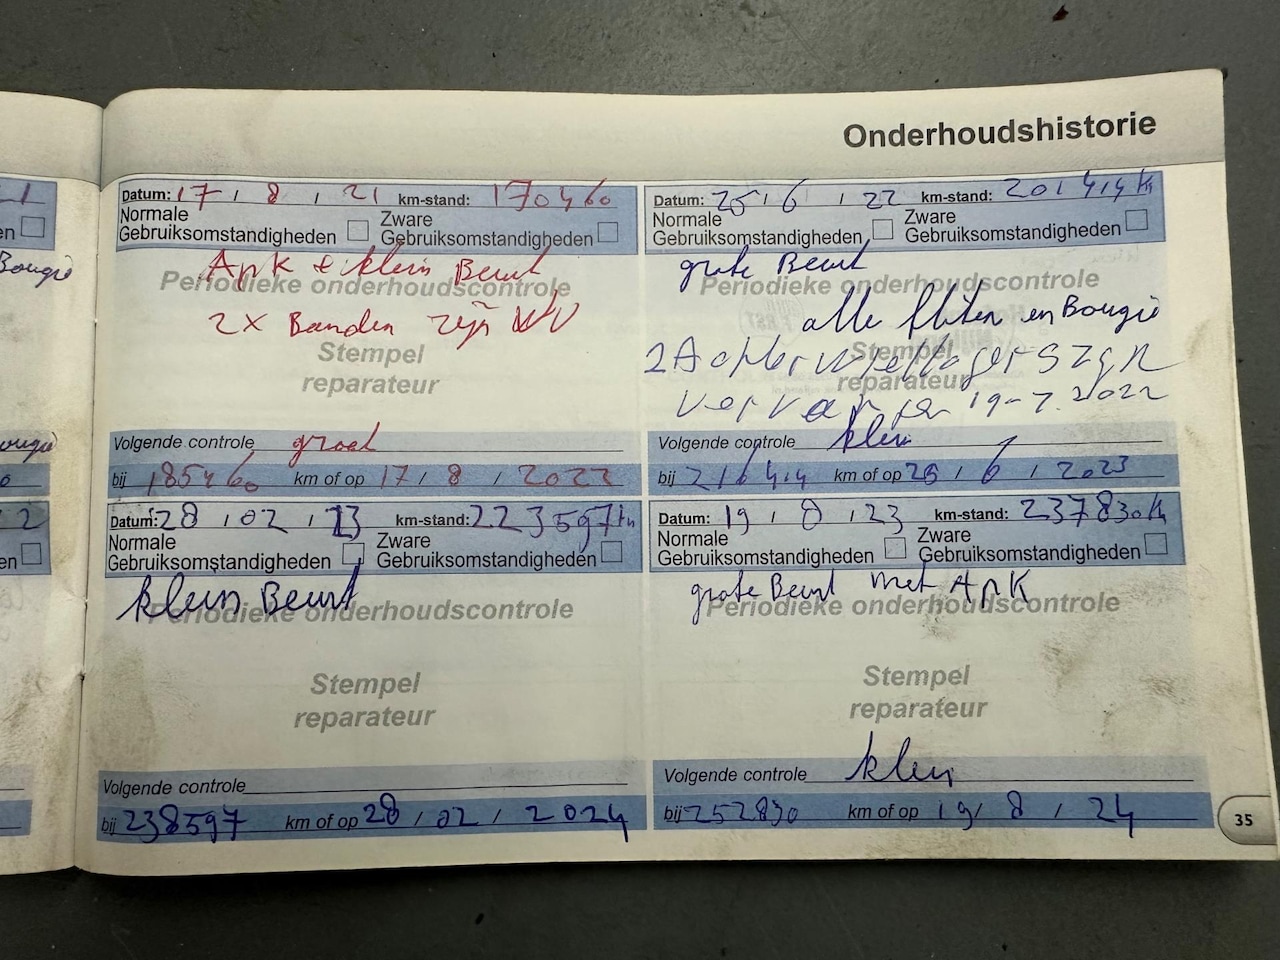 Onderhoudshistorie
Datum: 17 / 8 / 21 km-stand: 170460
Normale
Gebruiksomstandigheden
Zware
Gebruiksomstandigheden
Apk + klein Beurt
Periodieke onderhoudscontrole
2x Banden zijn
Stempel
reparateur
Volgende controle groot
bij 185460 km of op 17 / 8 / 2022
Datum: 25 / 6 / 22 km-stand: 201414 k
Normale
Gebruiksomstandigheden
Zware
Gebruiksomstandigheden
grote Beurt
Periodieke onderhoudscontrole
alle filters en Bougie
2 Achter wiellagers zijn
Stempel
reparateur
vervangen 19-7.2022
Volgende controle klein
bij 216414 km of op 25 / 6 / 2023
Datum: 28 / 02 / 23 km-stand: 223597 km
Normale
Gebruiksomstandigheden
Zware
Gebruiksomstandigheden
klein Beurt
Periodieke onderhoudscontrole
Stempel
reparateur
Volgende controle
bij 238597 km of op 28 / 02 / 2024
Datum: 19 / 8 / 23 km-stand: 237830 k
Normale
Gebruiksomstandigheden
Zware
Gebruiksomstandigheden
grote Beurt met Apk
Periodieke onderhoudscontrole
Stempel
reparateur
Volgende controle klein
bij 252830 km of op 19 / 8 / 24
35
Bougie